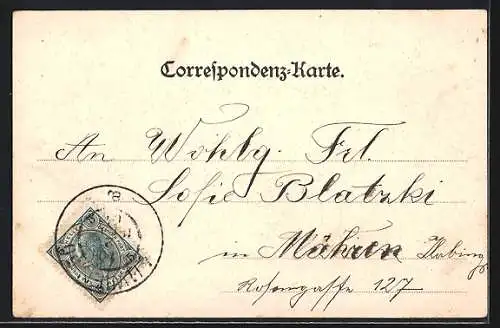 Correspondenz-Karte.
An Wohlg. Frl.
Sofie Blatzki
in Mähren
Rosengasse 127